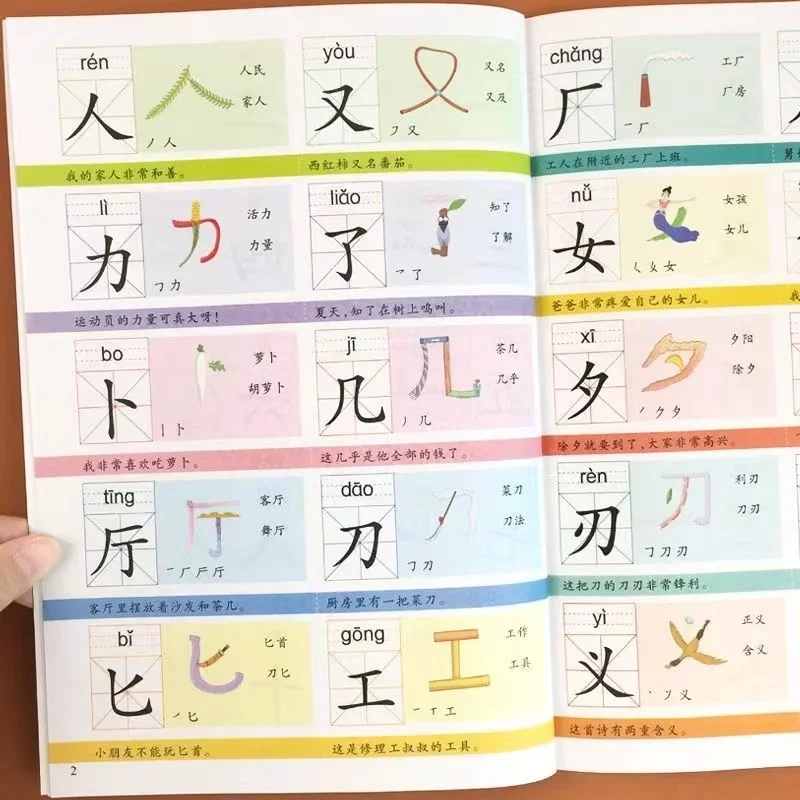 rén
人
人民
家人
丿人
我的家人非常和善。
yòu
又
又名
又及
㇇又
西红柿又名番茄。
lì
力
活力
力量
㇆力
运动员的力量可真大呀!
liǎo
了
知了
了解
乛了
夏天,知了在树上鸣叫。
bo
卜
萝卜
胡萝卜
丨卜
我非常喜欢吃萝卜。
jī
几
茶几
几乎
丿几
这几乎是他全部的钱了。
tīng
厅
客厅
舞厅
一厂厅厅
客厅里摆放着沙发和茶几。
dāo
刀
菜刀
刀法
㇆刀
厨房里有一把菜刀。
bǐ
匕
匕首
刀匕
㇀匕
小朋友不能玩匕首。
gōng
工
工作
工具
一丅工
这是修理工叔叔的工具。
2
chǎng
厂
工厂
厂房
一厂
工人在附近的工厂上班。
nǔ
女
女孩
女儿
㇛女女
爸爸非常疼爱自己的女儿。
xī
夕
夕阳
除夕
丿夕夕
除夕就要到了,大家非常高兴。
rèn
刃
利刃
刀刃
㇆刀刃
这把刀的刀刃非常锋利。
yì
义
正义
含义
丶丷义
这首诗有两重含义。